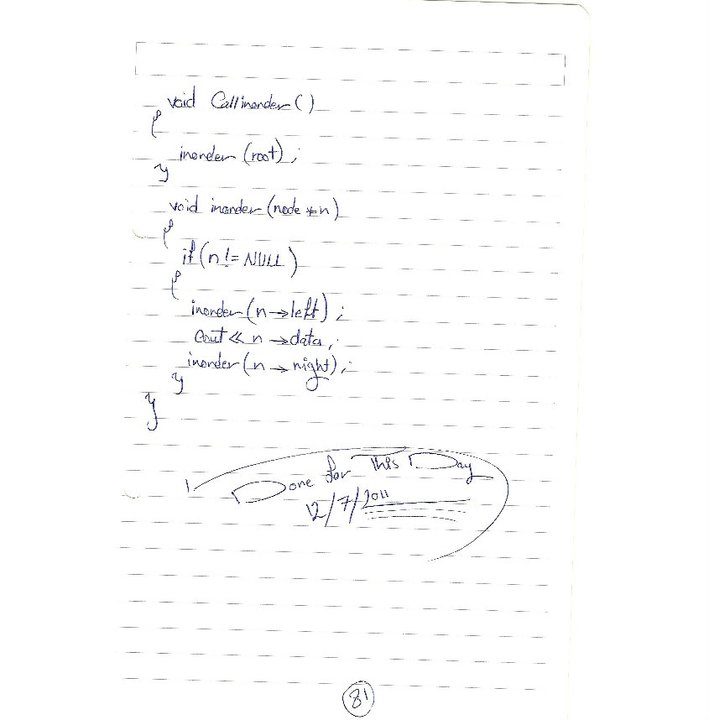 void Callinorder()
{
inorder(root);
}
void inorder(node *n)
{
if(n != NULL)
{
inorder(n→left);
cout << n→data;
inorder(n→right);
}
}
Done for This Day
12/7/2011
81